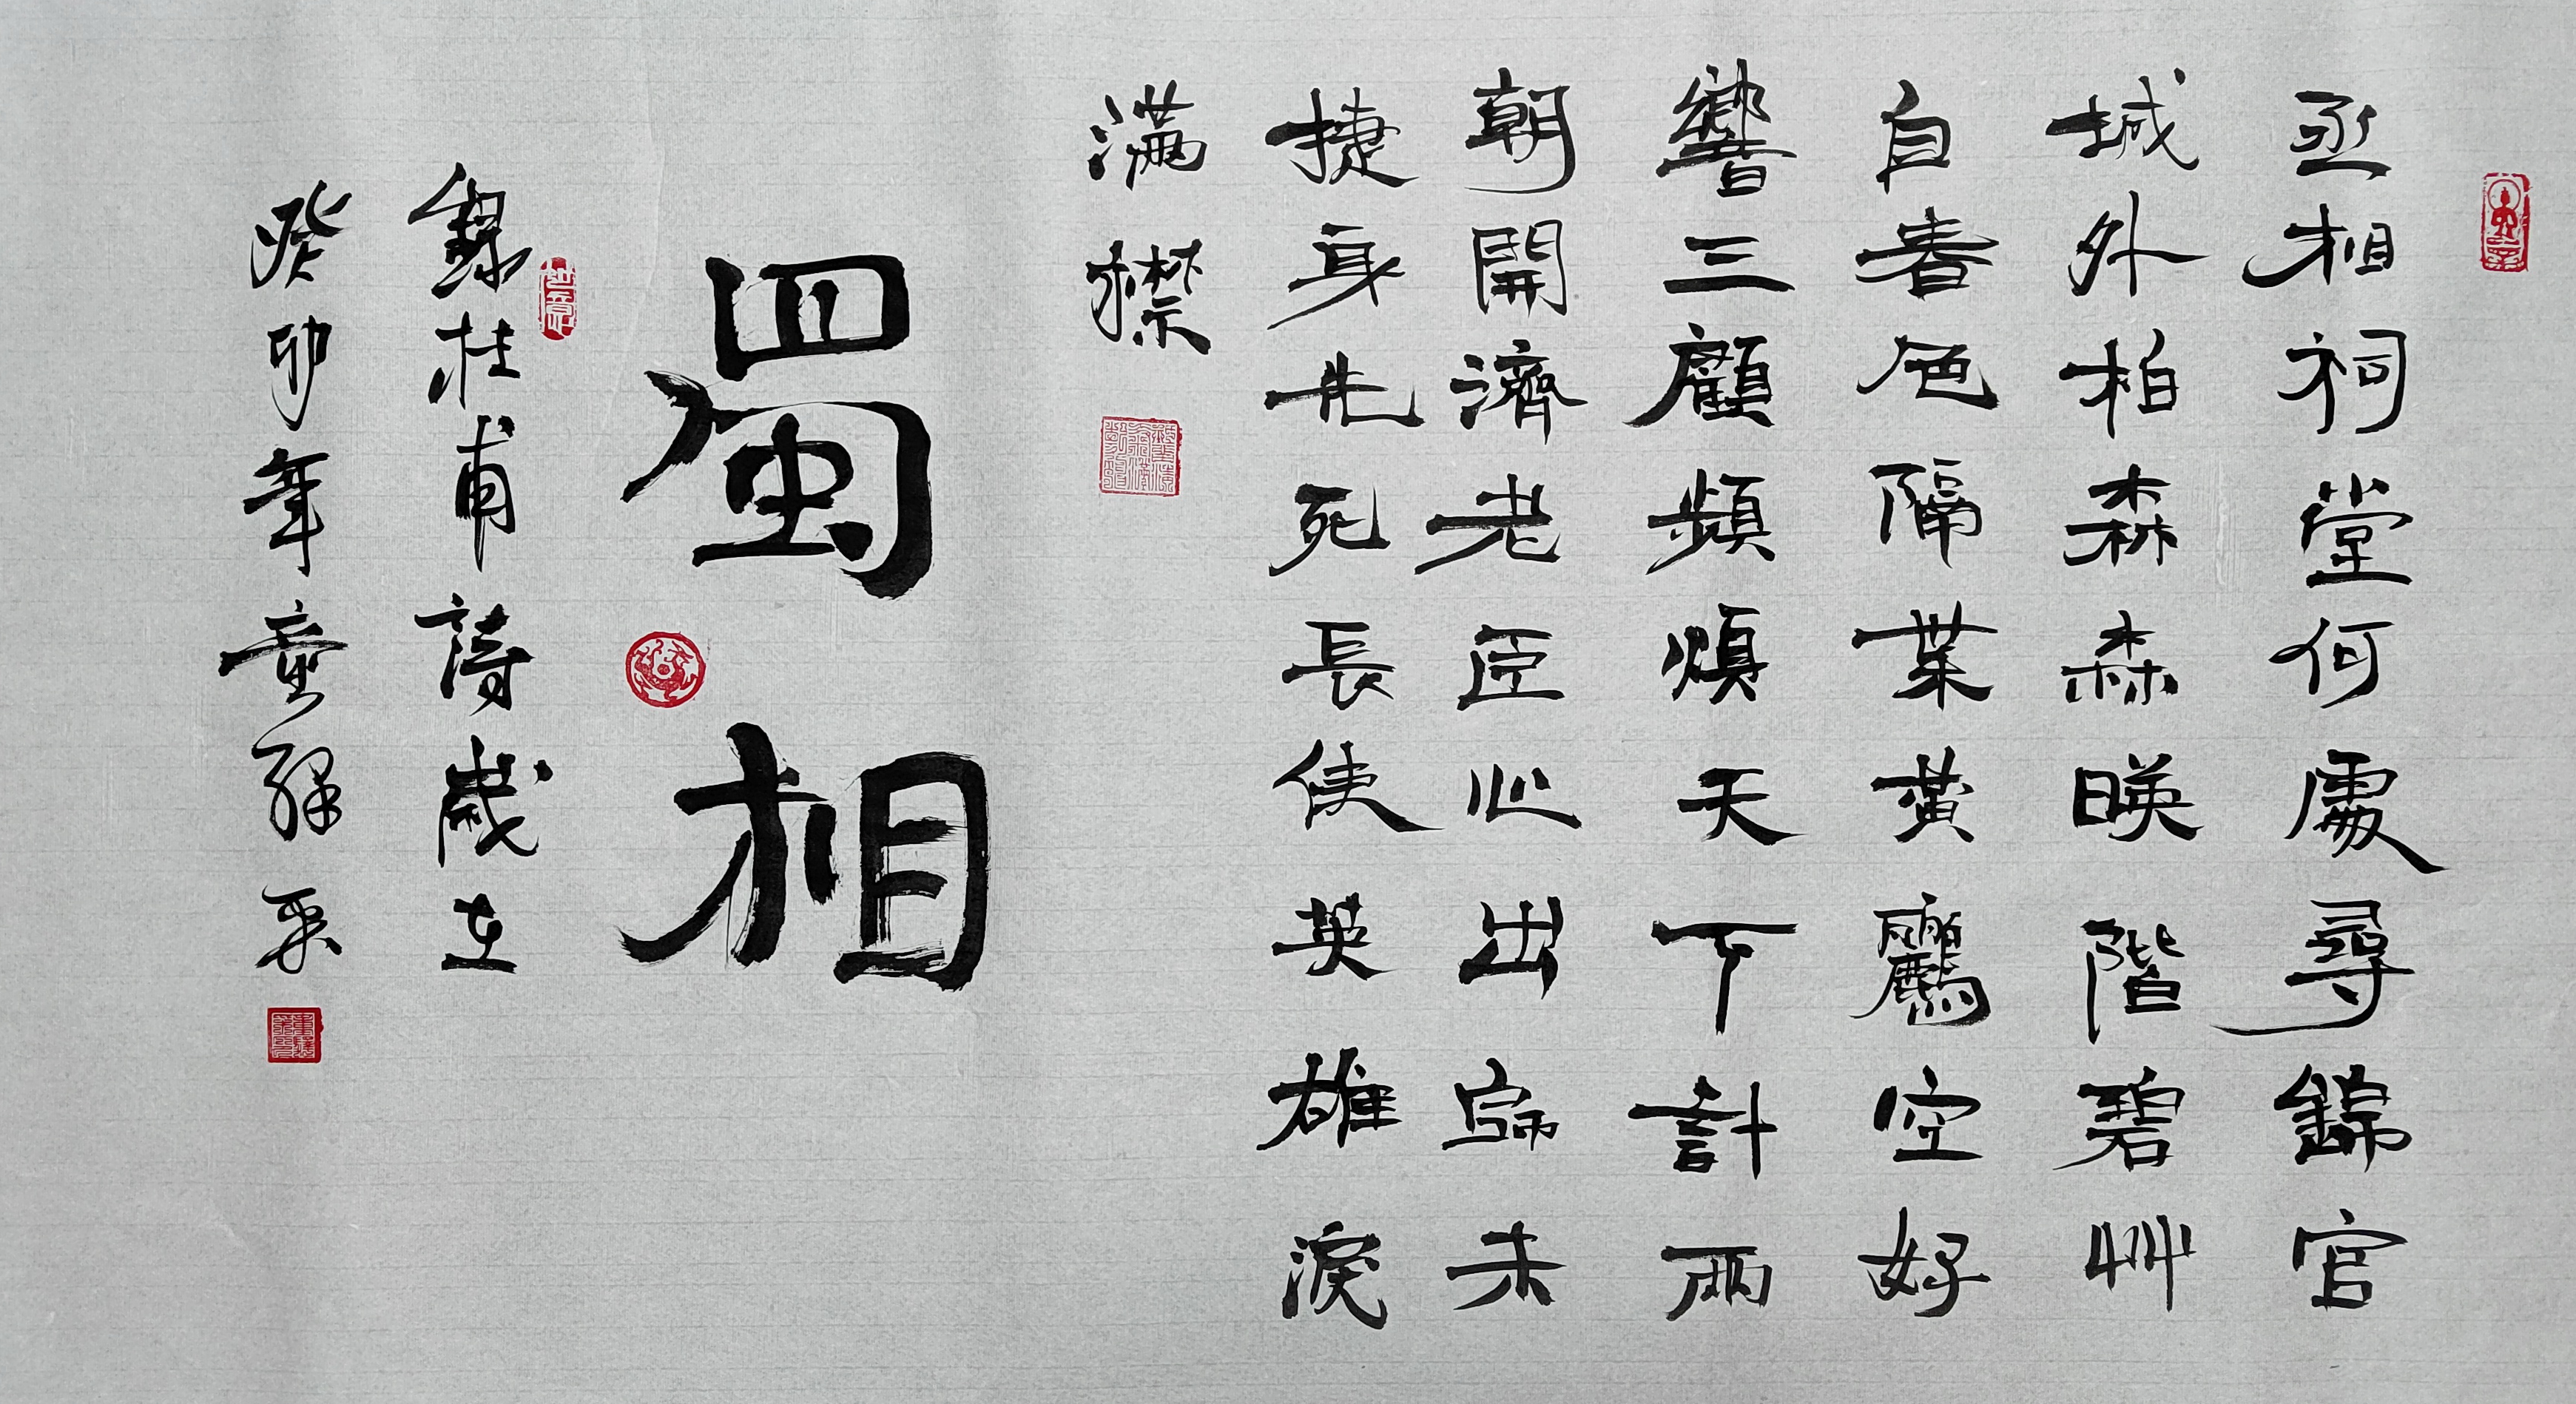 丞相祠堂何處尋錦官
城外柏森森暎階碧艸
自春色隔葉黃鸝空好
響三顧頻煩天下計兩
朝開濟老臣心出師未
捷身先死長使英雄淚
滿襟
蜀相
錄杜甫詩歲在
癸卯年童